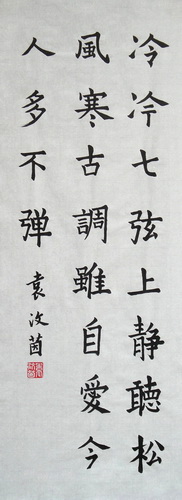 冷冷七弦上静聽松
風寒古調雖自愛今
人多不弹
袁汝茵